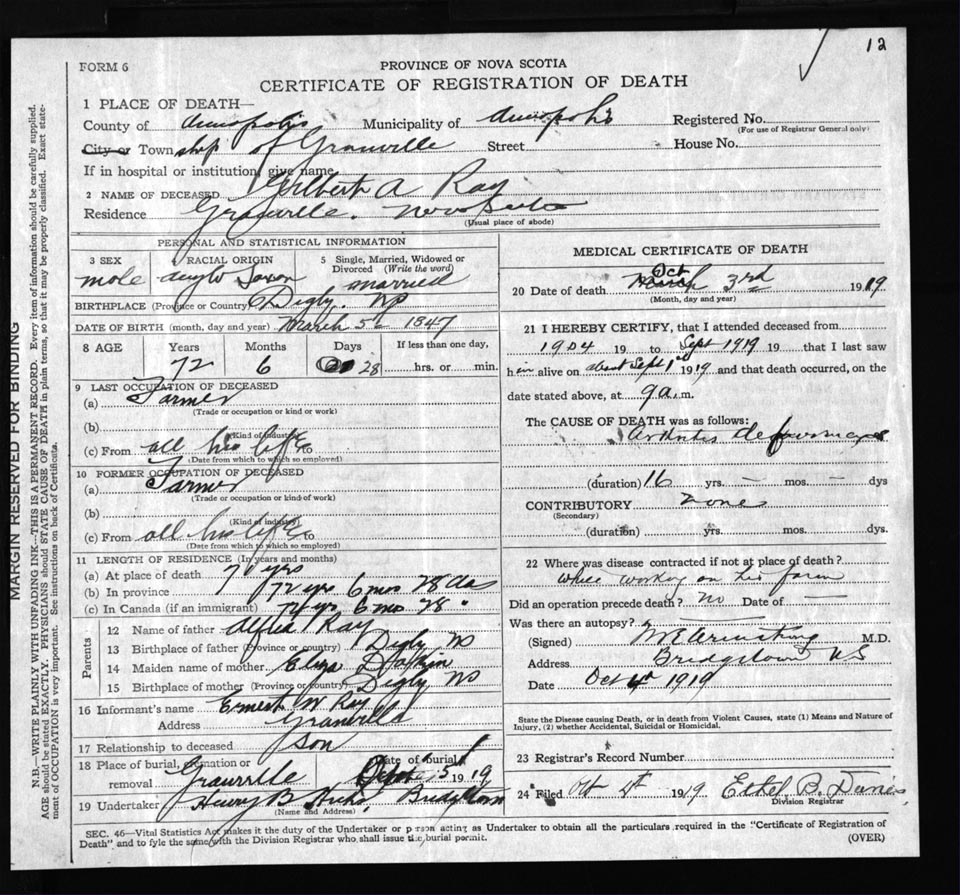 12
FORM 6
PROVINCE OF NOVA SCOTIA
CERTIFICATE OF REGISTRATION OF DEATH
MARGIN RESERVED FOR BINDING
N.B.—WRITE PLAINLY WITH UNFADING INK—THIS IS A PERMANENT RECORD. Every item of information should be carefully supplied.
AGE should be stated EXACTLY. PHYSICIANS should STATE CAUSE OF DEATH in plain terms, so that it may be properly classified. Exact state-
ment of OCCUPATION is very important. See instructions on back of Certificate.
1 PLACE OF DEATH—
County of Annapolis Municipality of Annapolis Registered No.
(For use of Registrar General only)
City or Town ship of Granville Street House No.
If in hospital or institution, give name
2 NAME OF DECEASED Gilbert A Ray
Residence Granville. Nova Scotia
(Usual place of abode)
PERSONAL AND STATISTICAL INFORMATION
3 SEX 4 RACIAL ORIGIN 5 Single, Married, Widowed or Divorced (Write the word)
male Anglo Saxon married
BIRTHPLACE (Province or Country) Digby. NS
DATE OF BIRTH (month, day and year) March 5th 1847
8 AGE Years Months Days If less than one day,
72 6 28 hrs. or min.
9 LAST OCCUPATION OF DECEASED
(a) Farmer
(Trade or occupation or kind or work)
(b)
(Kind of industry)
(c) From all his life to
(Date from which to which so employed)
10 FORMER OCCUPATION OF DECEASED
(a) Farmer
(Trade or occupation or kind of work)
(b)
(Kind of industry)
(c) From all his life to
(Date from which to which so employed)
11 LENGTH OF RESIDENCE (In years and months)
(a) At place of death yrs
(b) In province 72 yrs 6 mos 28 da
(c) In Canada (if an immigrant) 72 yrs 6 mo 28 "
Parents
12 Name of father Alfred Ray
13 Birthplace of father (Province or country) Digby NS
14 Maiden name of mother Eliza
15 Birthplace of mother (Province or country) Digby NS
16 Informant's name Ernest W Ray
Address Granville
17 Relationship to deceased son
18 Place of burial, cremation or removal Granville Date of burial Oct 5 1919
19 Undertaker Henry B Hicks Bridgetown
(Name and Address)
MEDICAL CERTIFICATE OF DEATH
20 Date of death March Oct 3rd 1919
(Month, day and year)
21 I HEREBY CERTIFY, that I attended deceased from
1904 19 to Sept 1919 19 that I last saw
h im alive on about Sept 1st 1919 and that death occurred, on the
date stated above, at 9 a.m.
The CAUSE OF DEATH was as follows:
Arthritis deformans
(duration) 16 yrs. — mos. — dys
CONTRIBUTORY none
(Secondary)
(duration) yrs. mos. dys.
22 Where was disease contracted if not at place of death?
While working on his farm
Did an operation precede death? no Date of —
Was there an autopsy? —
(Signed) M E Armstrong M.D.
Address Bridgetown NS
Date Oct 4th 1919
State the Disease causing Death, or in death from Violent Causes, state (1) Means and Nature of
Injury, (2) whether Accidental, Suicidal or Homicidal.
23 Registrar's Record Number
24 Filed Oct 4th 1919 Ethel B. Davies
Division Registrar
SEC. 46—Vital Statistics Act makes it the duty of the Undertaker or person acting as Undertaker to obtain all the particulars required in the "Certificate of Registration of
Death" and to fyle the same with the Division Registrar who shall issue the burial permit.
(OVER)